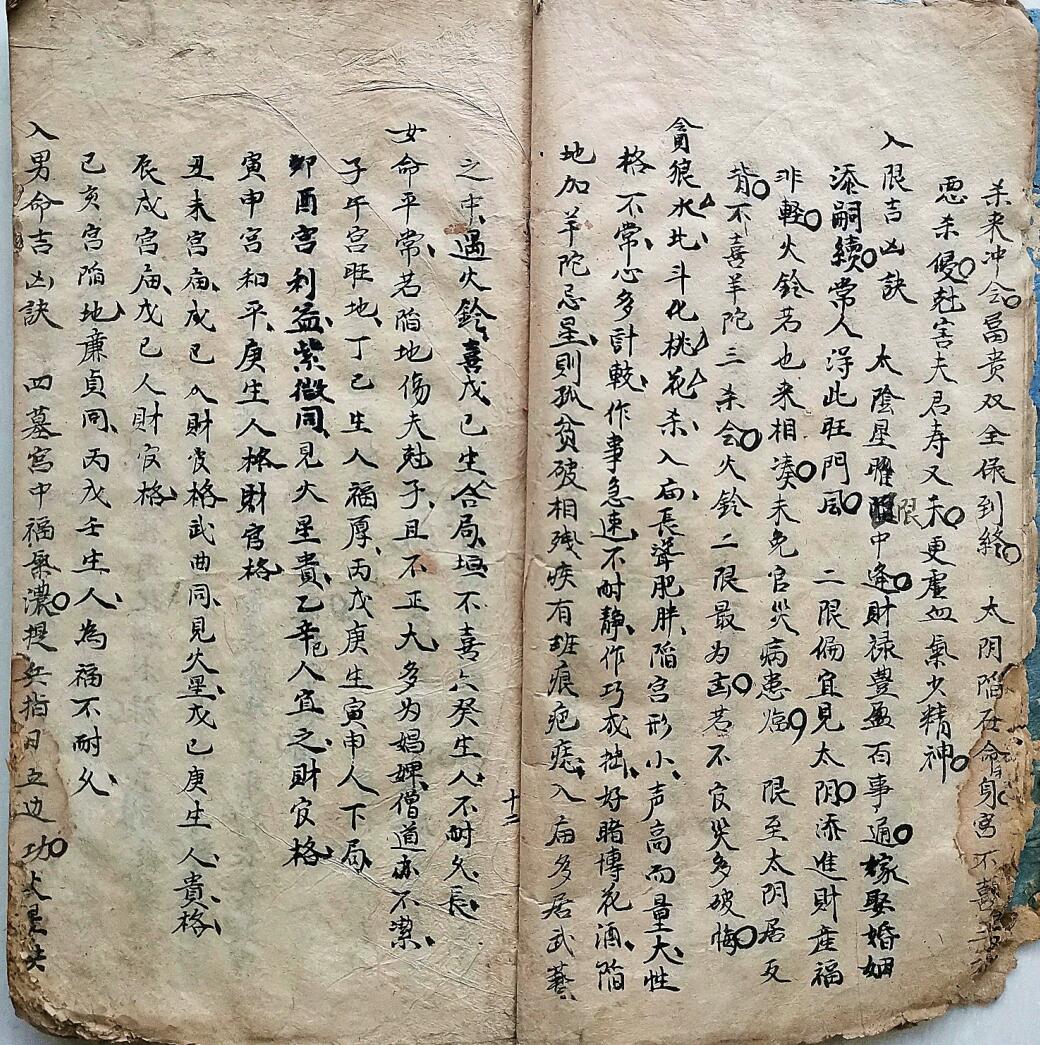 杀来冲会富贵双全保到終 太阴陷在命身宮不喜
悪杀侵尅害夫君寿又夭更虛血氣少精神
入限吉凶訣 太陰星曜限中逢財禄豊盈百事通嫁娶婚姻
添嗣續常人淂此旺門風 二限偏宜見太阴添進財産福
非軽火鈴若也来相凑未免官災病患臨 限至太阴居反
背不喜羊陀三杀会火鈴二限最为凶若不官災多破悔
貪狼水北斗化桃花杀入庙長聳肥胖陷宮形小声高而量大性
格不常心多計較作事急速不耐静作巧成拙好賭博花酒陷
地加羊陀忌星則孤贫破相残疾有班痕疤痣入庙多居武藝
之中遇火鈴喜戊己生合局垣不喜六癸生人不耐久長
十二
女命平常若陷地傷夫尅子且不正大多为娼婢僧道亦不潔
子午宮旺地丁己生人福厚丙戊庚生寅申人下局
卯酉宮利益紫微同見火星貴乙辛己人宜之財官格
寅申宮和平庚生人格財官格
丑未宮庙戊己人財官格武曲同見火星戊己庚生人貴格
辰戌宮庙戊己人財官格
己亥宮陷地廉貞同丙戊壬生人為福不耐久
入男命吉凶訣 四墓宮中福氣濃提兵指日立边功火星